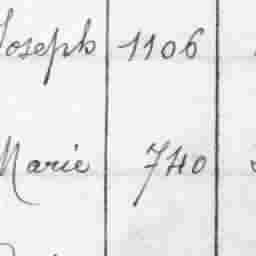 Joseph 1106
Marie 740